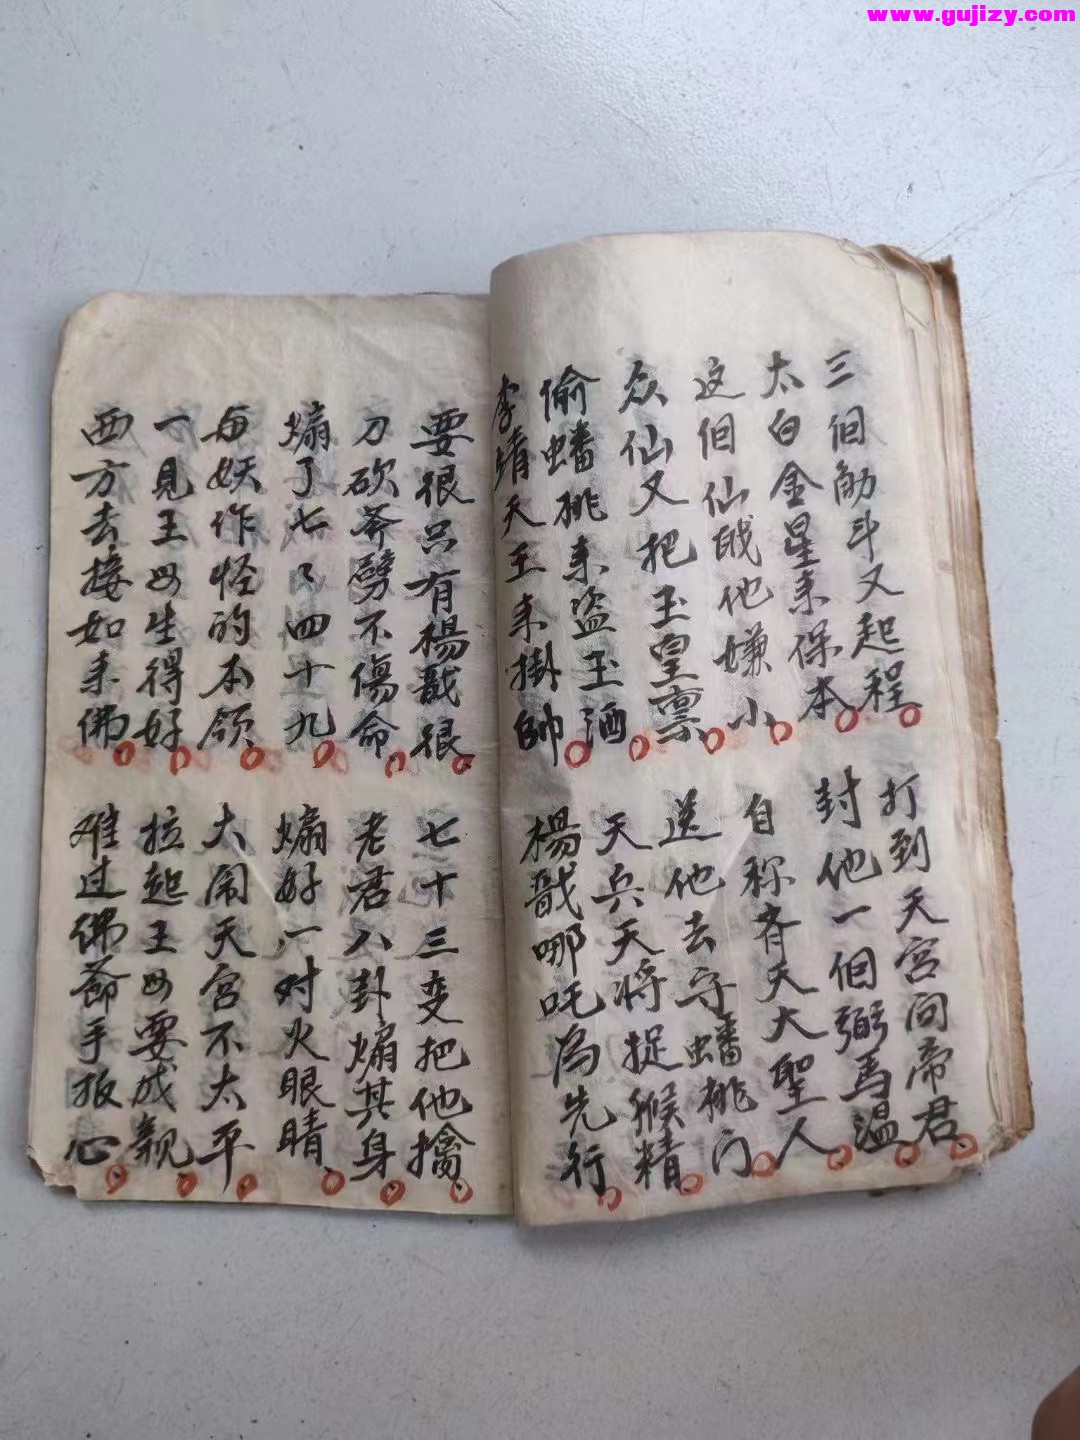 www.gujizy.com
三個觔斗又起程
打到天宮问帝君
太白金星来保本
封他一個弼馬温
这個仙戝他嫌小
自称斉天大聖人
众仙又把玉皇禀
送他去守蟠桃门
偷蟠桃来盗玉酒
天兵天将捉猴精
李靖天王来掛帥
楊戩哪吒為先行
要很只有楊戩很
七十三变把他擒
刀砍斧劈不傷命
老君八卦煽其身
煽了七七四十九
煽好一对火眼睛
与妖作怪的本领
大闹天宮不太平
一見王母生得好
拉起王母要成親
西方去接如来佛
难过佛爺手板心